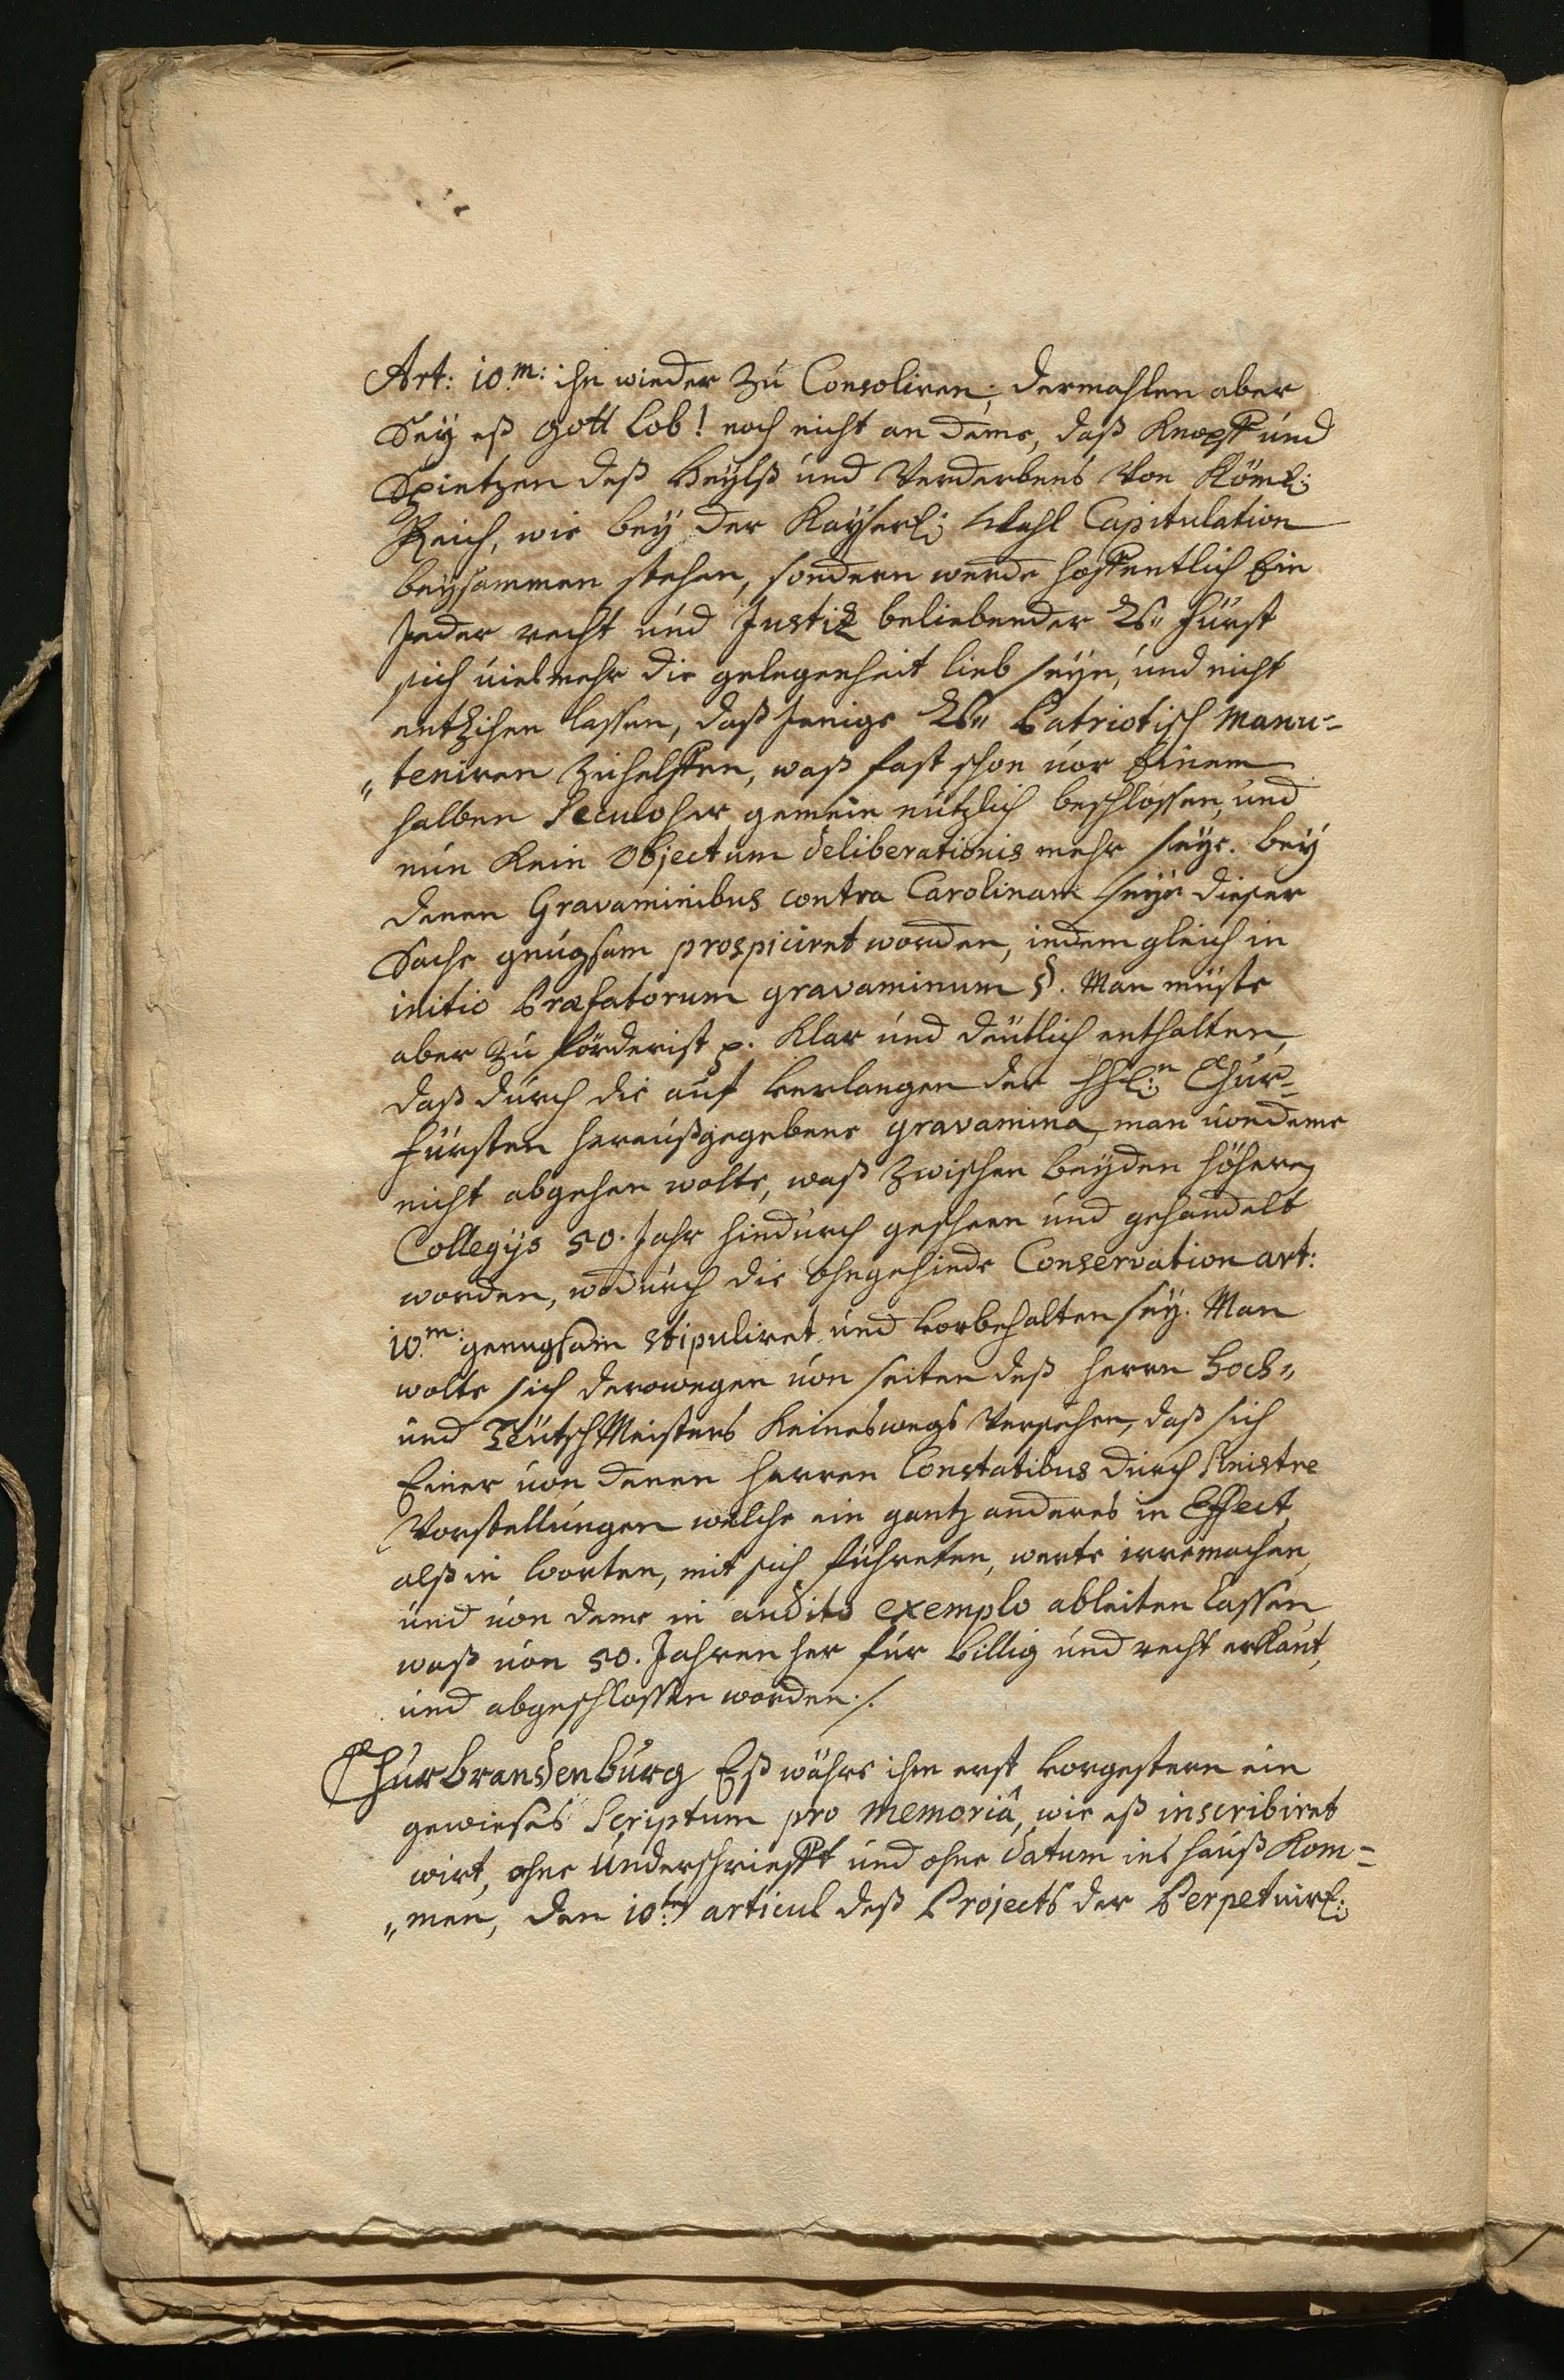 Art: 10.m: ihn wieder Zu Consoliren; dermahlen aber
Seÿ eß Gott Lob! noch nicht an deme, daß Knopff und
Spietzen deß Heÿlß und Verderbens Von Röml:
Reich, wie beÿ der Kaÿserl: Wahl Capitulation
beÿsammen stehen, sondern werde hoffentlich Ein
Jeder recht und Justiz beliebender Rs" Fürst
sich viel mehr die gelegenheit lieb seÿn, und nicht
entzihen lassen, daß Jenige Rs" Patriotisch manu=
"teniren Zuhelffen, waß fast schon vor Einem
halben Seculo her, gemein nützlich beschlossen, und
nun Kein Objectum deliberationis mehr seÿe. beÿ
denen Gravaminibus contra Carolinam seÿe dieser
Sache gnugsam prospiciret worden, indem gleich in
initio Præfatorum gravaminum §. Man müste
aber Zu förderist p. Klar und deütlich enthalten,
daß durch die auf Verlangen der HH:n Chur=
fürsten heraußgegebene gravamina, man von deme
nicht abgehen wolte, waß Zwischen beÿden höhern
Collegijs 50. Jahr hindurch geschehen und gehandelt
worden, wodurch die ohngehinde Conservation art:
10.m: genugsam stipuliret und Vorbehalten seÿ. Man
wolte sich derowegen von seiten deß Herrn Hoch"
und TeütschMeisters Keineswegs Versehen, daß sich
Einer von denen Herren Constatibus durch sinistre
Vorstellungen welche ein gantz anderes in Effect
alß in Worten, mit sich führeten, werte irremachen,
und von deme in audito exemplo ableiten lassen
waß von 50. Jahren her für Billig und recht erkant,
und abgeschlossen worden./.
Churbrandenburg Eß währe ihm erst Vorgestern ein
gewieses Scriptum pro memoriâ, wie eß inscribiret
wirt, ohne Underschriefft und ohne datum ins Hauß Kom=
"men, den 10ten articul deß Projects der Perpetuirl: